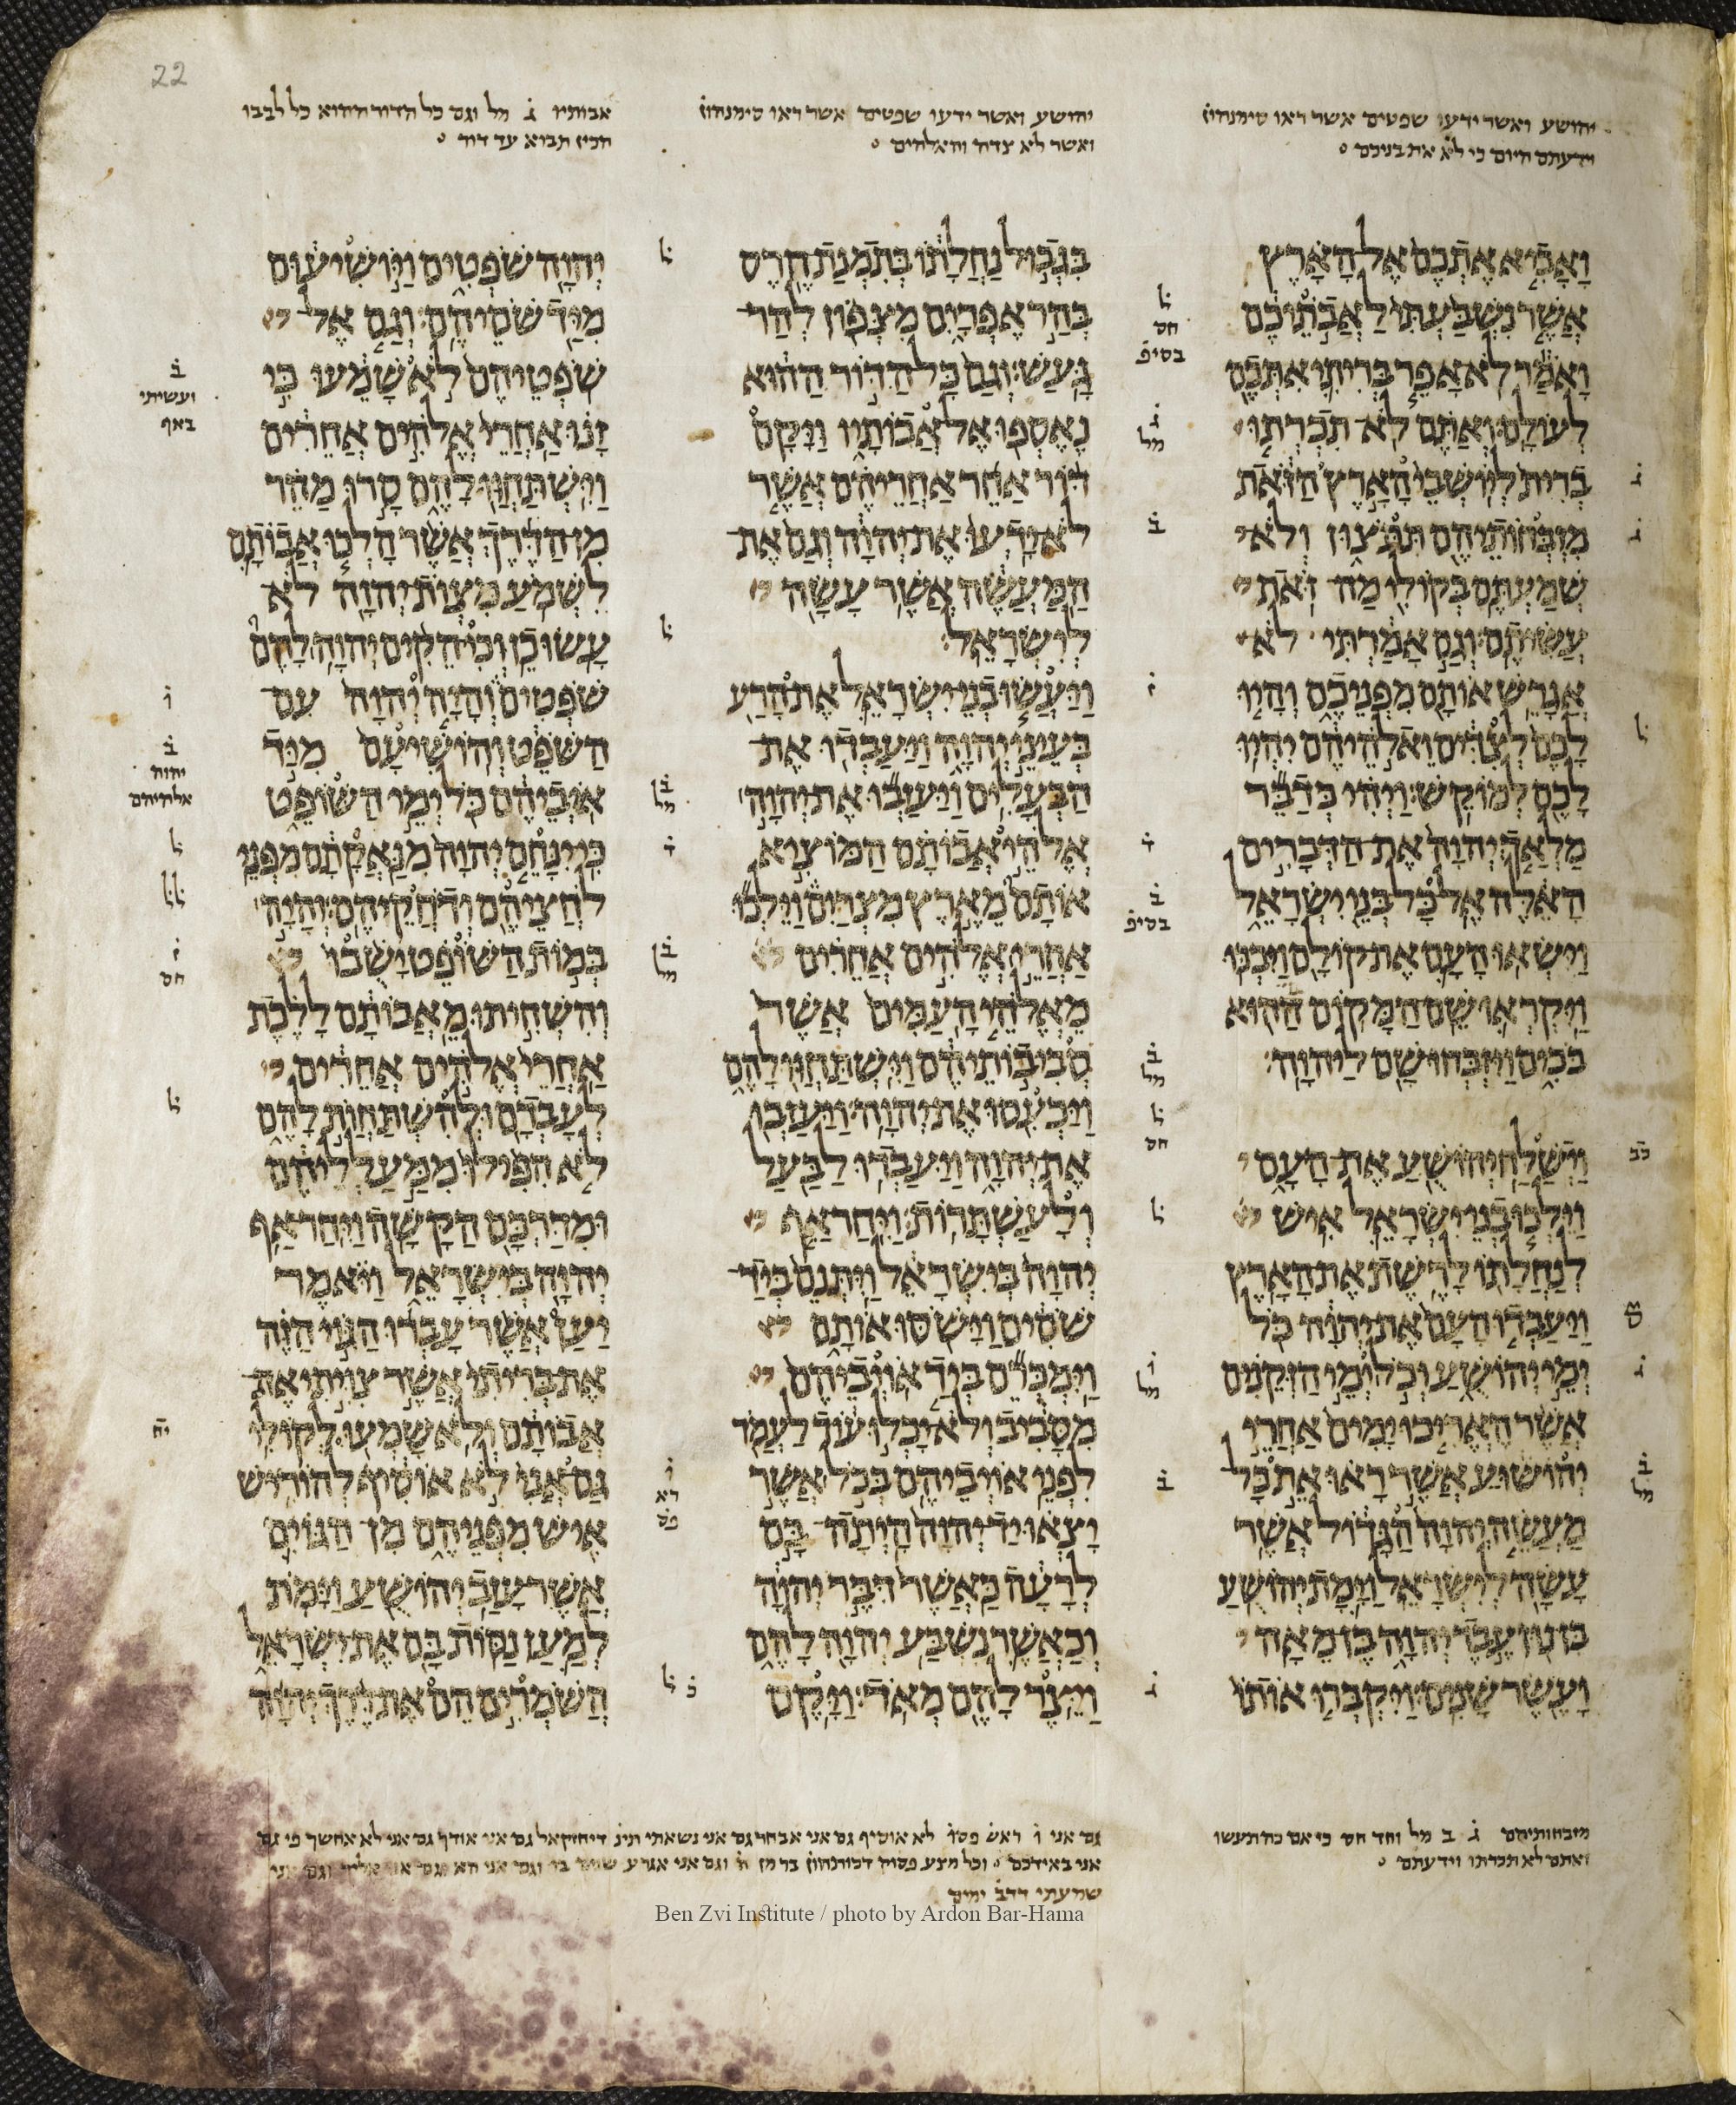 22
יהושע ואשר ידעו שפטים אשר ראו סימנהון
וידעתם היום כי לא את בניכם
יהושע ואשר ידעו שפטים אשר ראו סימנהון
ואשר לא צדה והאלהים
אבותיו ג מל וגם כל הדור ההוא כל לבבו
הכין תבוא עד דור
ואביא אתכם אל הארץ
אשר נשבעתי לאבתיכם
ואמר לא אפר בריתי אתכם
לעולם ואתם לא תכרתו
ברית ליושבי הארץ הזאת
מזבחותיהם תתצון ולא
שמעתם בקולי מה זאת
עשיתם וגם אמרתי לא
אגרש אותם מפניכם והיו
לכם לצדים ואלהיהם יהיו
לכם למוקש ויהי כדבר
מלאך יהוה את הדברים
האלה אל כל בני ישראל
וישאו העם את קולם ויבכו
ויקראו שם המקום ההוא
בכים ויזבחו שם ליהוה
וישלח יהושע את העם
וילכו בני ישראל איש
לנחלתו לרשת את הארץ
ויעבדו העם את יהוה כל
ימי יהושע וכל ימי הזקנים
אשר האריכו ימים אחרי
יהושוע אשר ראו את כל
מעשה יהוה הגדול אשר
עשה לישראל וימת יהושע
בן נון עבד יהוה בן מאה
ועשר שנים ויקברו אותו
בגבול נחלתו בתמנת חרס
בהר אפרים מצפון להר
געש וגם כל הדור ההוא
נאספו אל אבותיו ויקם
דור אחר אחריהם אשר
לא ידעו את יהוה וגם את
המעשה אשר עשה
לישראל
ויעשו בני ישראל את הרע
בעיני יהוה ויעבדו את
הבעלים ויעזבו את יהוה
אלהי אבותם המוציא
אותם מארץ מצרים וילכו
אחרי אלהים אחרים
מאלהי העמים אשר
סביבותיהם וישתחוו להם
ויכעסו את יהוה ויעזבו
את יהוה ויעבדו לבעל
ולעשתרות ויחר אף
יהוה בישראל ויתנם ביד
שסים וישסו אותם
וימכרם ביד אויביהם
מסביב ולא יכלו עוד לעמד
לפני אויביהם בכל אשר
יצאו יד יהוה היתה בם
לרעה כאשר דבר יהוה
וכאשר נשבע יהוה להם
ויצר להם מאד ויקם
יהוה שפטים ויושיעום
מיד שסיהם וגם אל
שפטיהם לא שמעו כי
זנו אחרי אלהים אחרים
וישתחוו להם סרו מהר
מן הדרך אשר הלכו אבותם
לשמע מצות יהוה לא
עשו כן וכי הקים יהוה להם
שפטים והיה יהוה עם
השפט והושיעם מיד
איביהם כל ימי השופט
כי ינחם יהוה מנאקתם מפני
לחציהם ודחקיהם והיה
במות השופט ישבו
והשחיתו מאבותם ללכת
אחרי אלהים אחרים
לעבדם ולהשתחות להם
לא הפילו ממעלליהם
ומדרכם הקשה ויחר אף
יהוה בישראל ויאמר
יען אשר עברו הגוי הזה
את בריתי אשר צויתי את
אבותם ולא שמעו לקולי
גם אני לא אוסיף להוריש
איש מפניהם מן הגוים
אשר עזב יהושע וימת
למען נסות בם את ישראל
השמרים הם את דרך יהוה
מזבחותיהם ג ב מל וחד חס כי אם כה תעשו
ואתם לא תכרתו וידעתם
גם אני ו ראש פסו לא אוסיף גם אני אבחר גם אני נשאתי דיחזקאל גם אני אודך גם אני לא אחשך פי גם
אני באידכם וכל מצע פסוק דכותהון
שמעתי דדב ימים
Ben Zvi Institute / photo by Ardon Bar-Hama